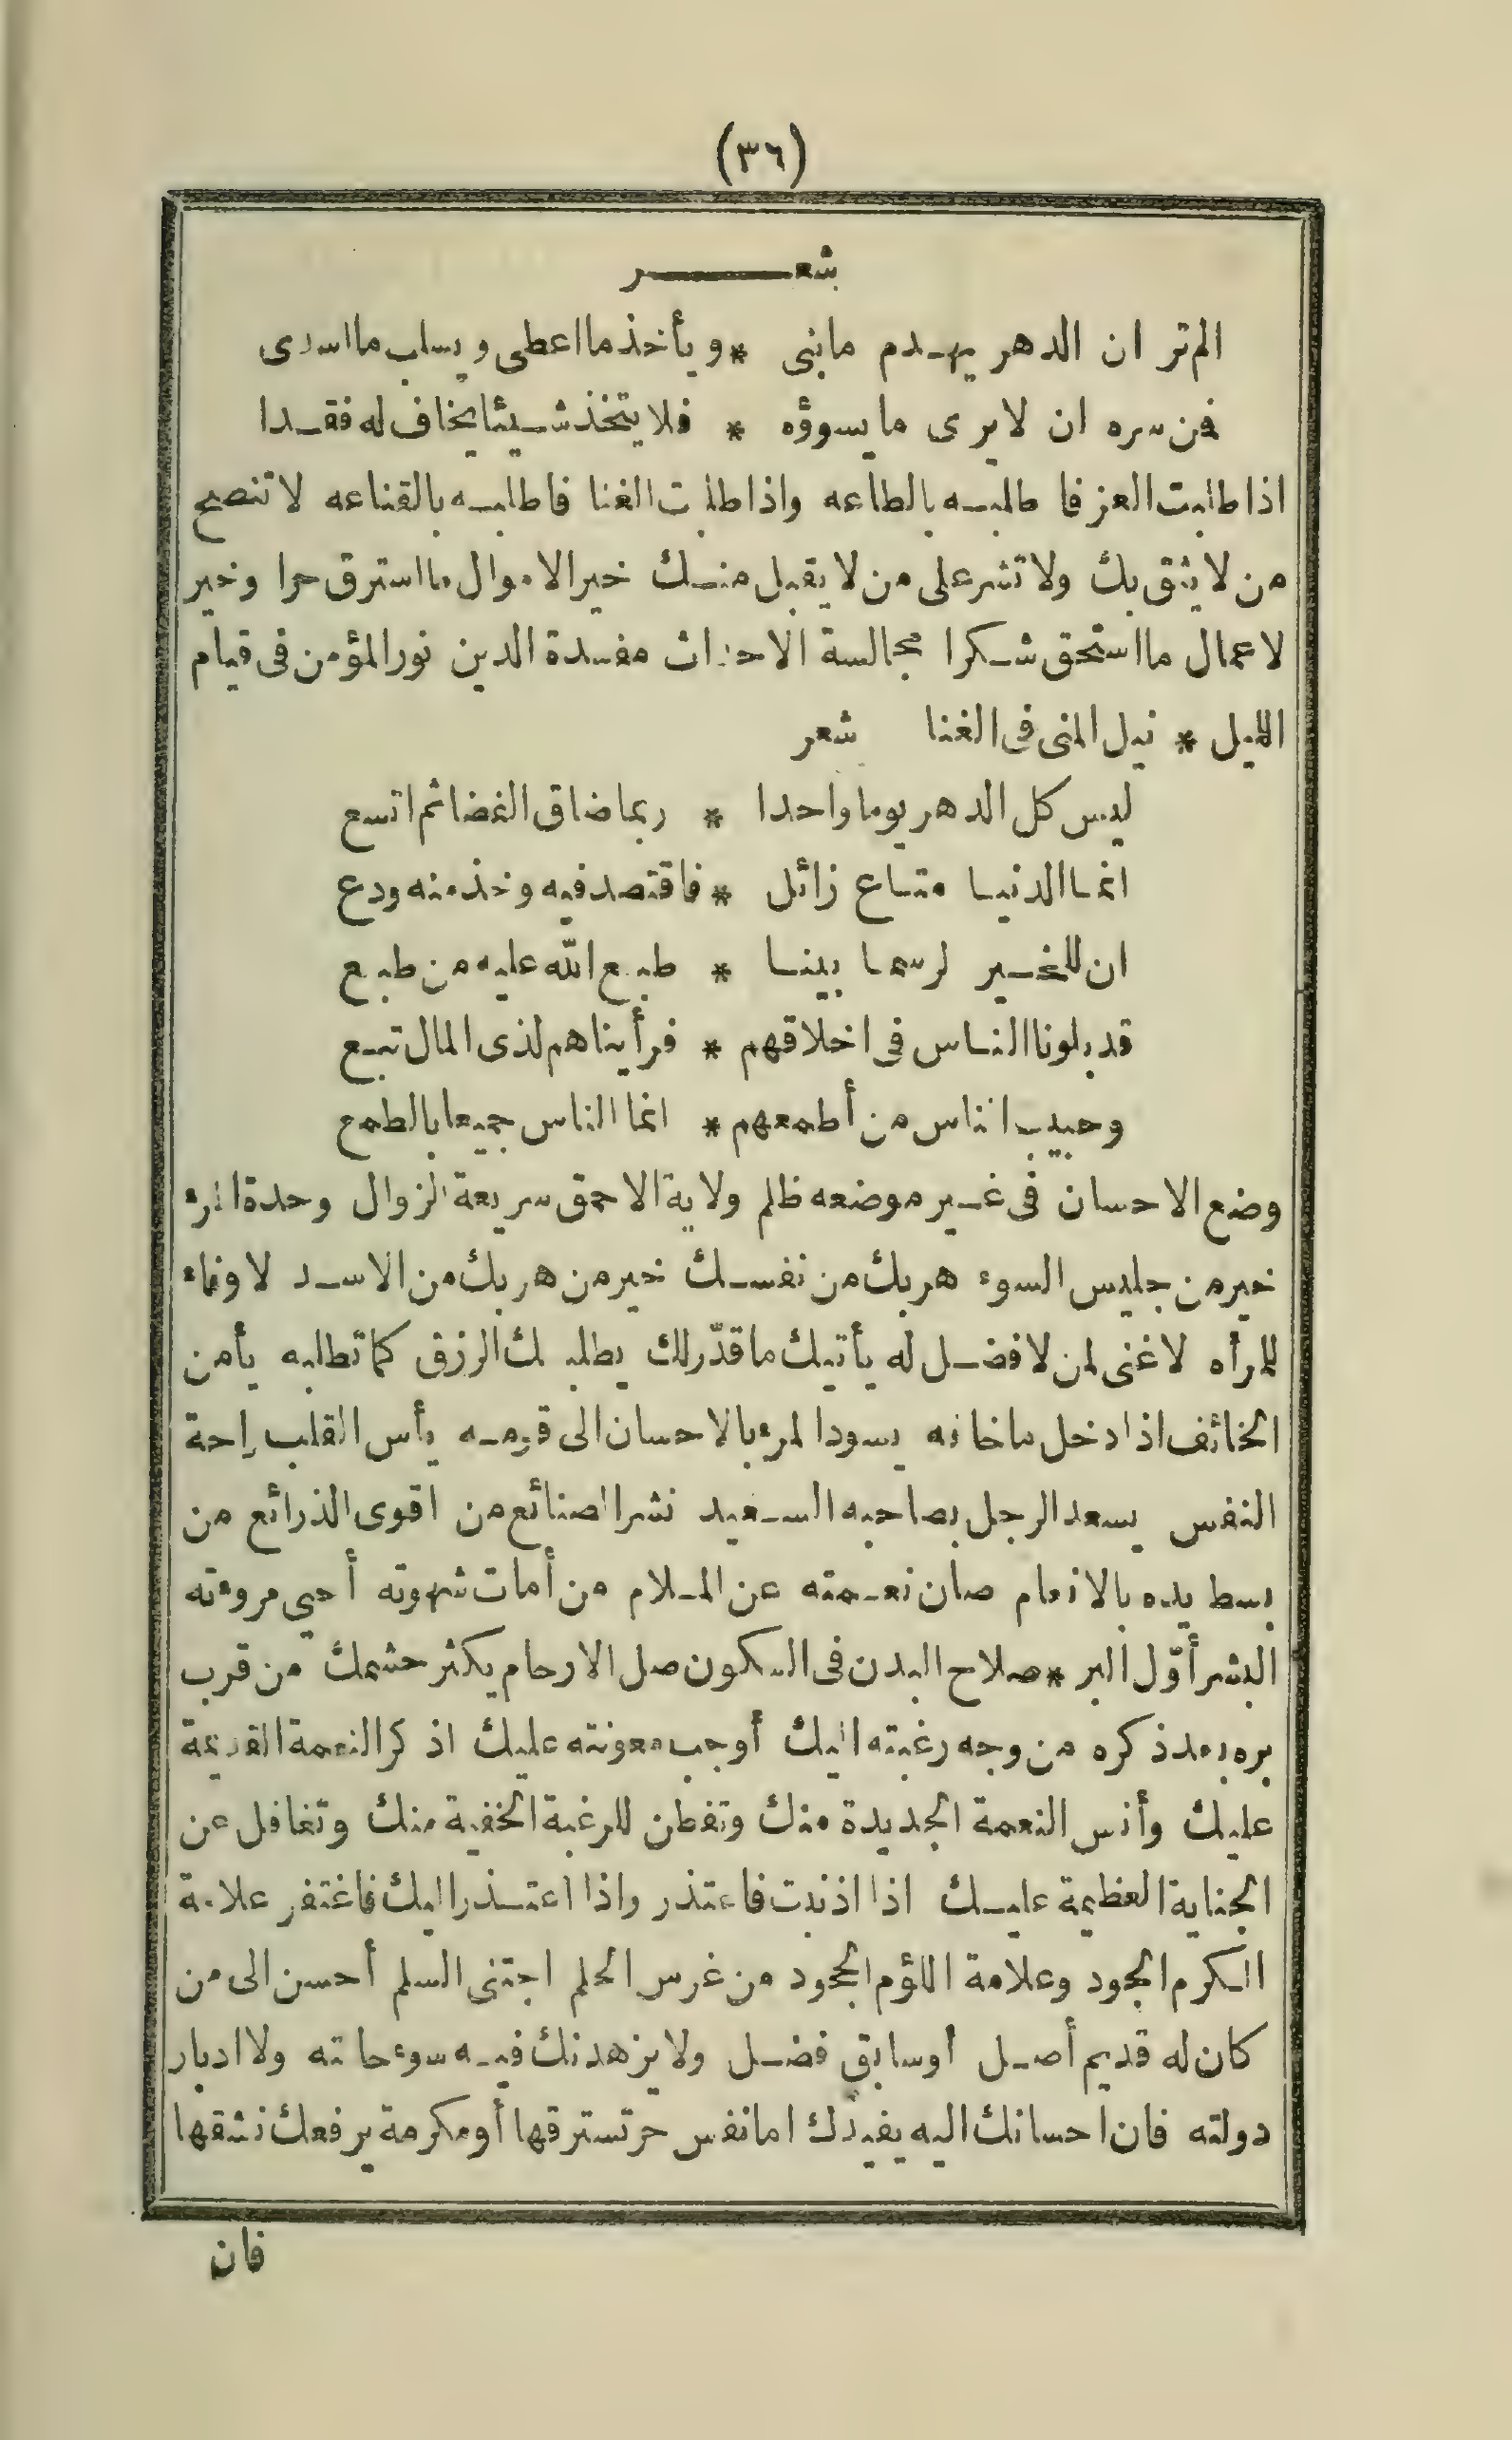 (٣٦)
شعر
الم تر ان الدهر يهدم ما بنى * و يأخذ ما اعطى و يسلب ما اسدى
فمن سره ان لا يرى ما يسوؤه * فلا يتخذ شيئا يخاف له فقدا
اذا طلبت العز فا طلبه بالطاعه واذا طلبت الغنا فاطلبه بالقناعه لا تنصح
من لا يثق بك ولا تشر على من لا يقبل منك خير الاموال ما استرق حرا وخير
لاعمال ما استحق شكرا مجالسة الاحداث مفسدة الدين نور المؤمن فى قيام
الليل * نيل المنى فى الغنا شعر
ليس كل الدهر يوما واحدا * ربما ضاق الفضا ثم اتسع
انما الدنيا متاع زائل * فاقتصد فيه وخذ منه ودع
ان للخير لرسما بينا * طبع الله عليه من طبع
قد بلونا الناس فى اخلاقهم * فرأيناهم لذى المال تبع
وحبيب الناس من أطمعهم * انما الناس جميعا بالطمع
وضع الاحسان فى غير موضعه ظلم ولاية الاحمق سريعة الزوال وحدة المرء
خير من جليس السوء هربك من نفسك خير من هربك من الاسد لا وفاء
للمرأه لا غنى لمن لا فضل له يأتيك ما قدّر لك يطلبك الرزق كما تطلبه يأمن
الخائف اذا دخل ما خافه يسود المرء بالاحسان الى قومه يأس القلب راحة
النفس يسعد الرجل بصاحبه السعيد نشر الصنائع من اقوى الذرائع من
بسط يده بالانعام صان نعمته عن الملام من أمات شهوته أحيى مروءته
البشر أوّل البر * صلاح البدن فى السكون صل الارحام يكثر حشمك من قرب
بره بعد ذكره من وجه رغبته اليك أوجب معونته عليك اذ كر النعمة القديمة
عليك وأنس النعمة الجديدة منك وتفطن للرغبة الخفية منك وتغافل عن
الجناية العظيمة عليك اذا اذنبت فاعتذر واذا اعتذر اليك فاغتفر علامة
الكرم الجود وعلامة اللؤم الجحود من غرس الحلم اجتنى السلم أحسن الى من
كان له قديم أصل اوسابق فضل ولا يزهدنك فيه سوء حاته ولا ادبار
دولته فان احسانك اليه يفيدك اما نفس حر تسترقها أو مكرمة يرفعك نشقها
فان